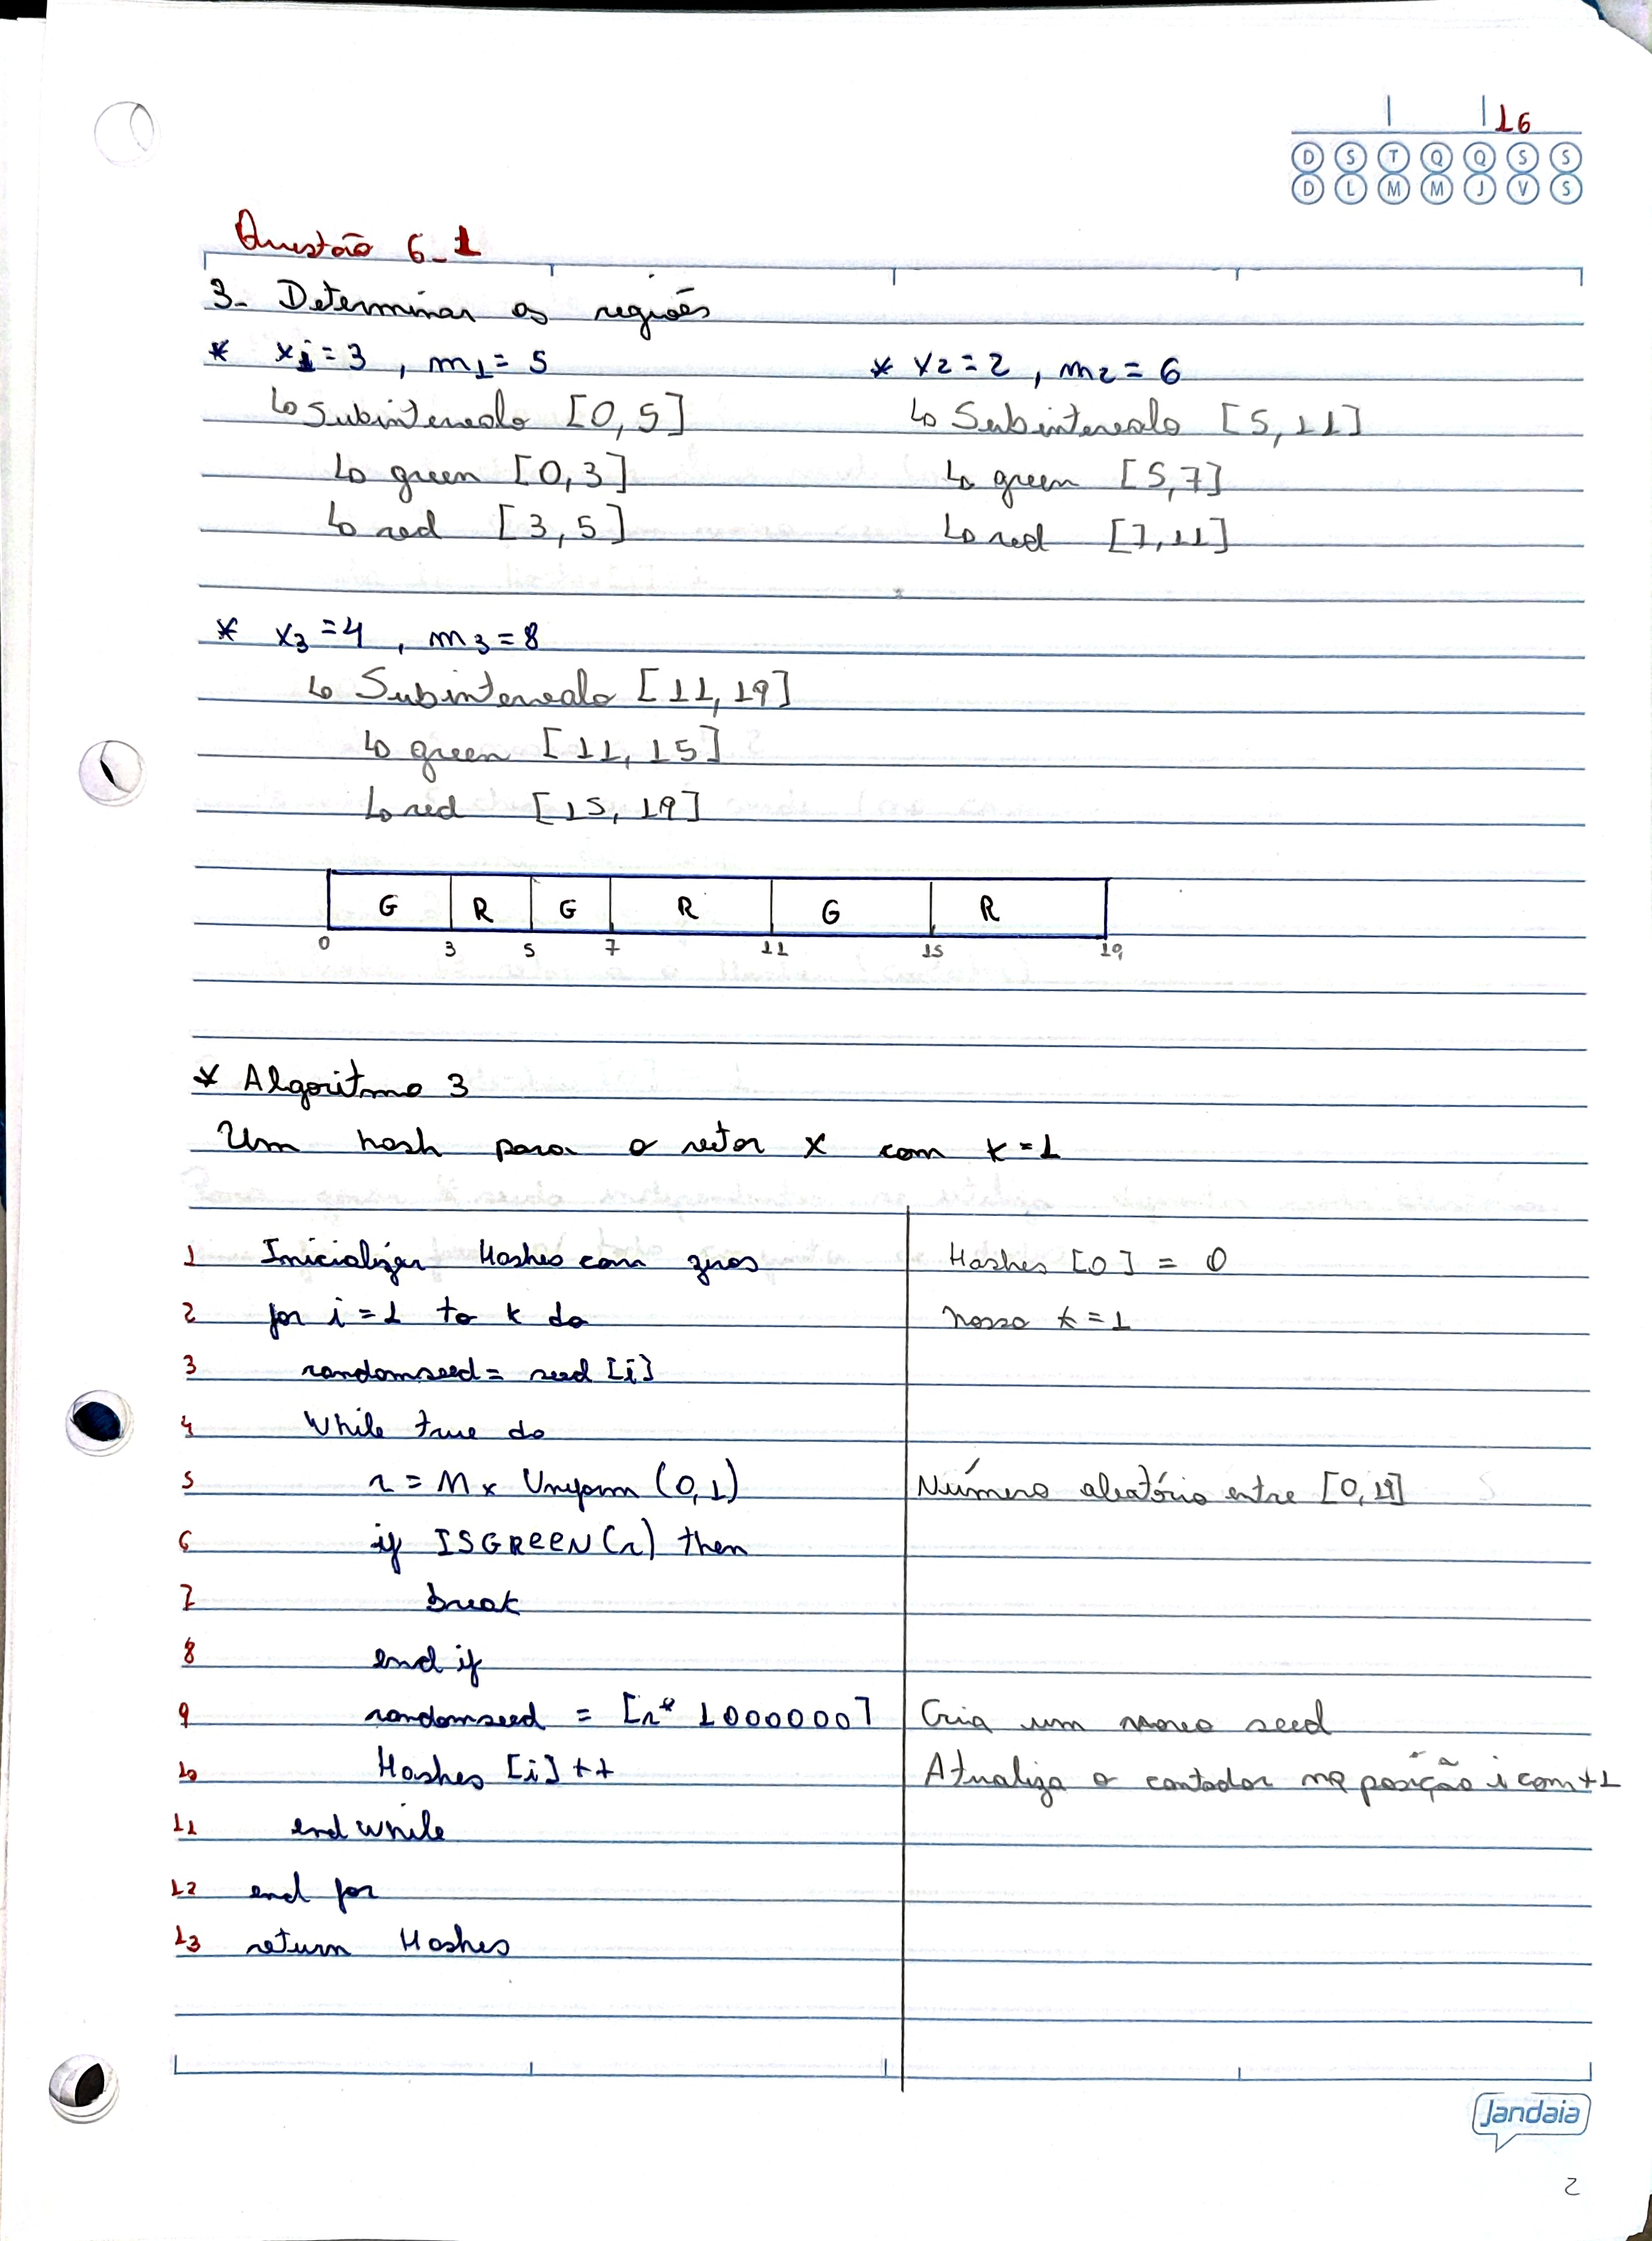 16
D S T Q Q S S
D L M M J V S
Questão 6_1
3- Determinar as regiões
* x1 = 3 , m1 = 5
* x2 = 2 , m2 = 6
↳ Subintervalo [0,5]
↳ Subintervalo [5,11]
↳ green [0,3]
↳ green [5,7]
↳ red [3,5]
↳ red [7,11]
* x3 = 4 , m3 = 8
↳ Subintervalo [11,19]
↳ green [11,15]
↳ red [15,19]
G R G R G R
0 3 5 7 11 15 19
* Algoritmo 3
Um hash para o vetor x com k = 1
1 Inicializar Hashes com zeros
Hashes [0] = 0
2 for i = 1 to k do
nosso k = 1
3 randomseed = seed [i]
4 While true do
5 r = M x Uniform (0,1)
Número aleatório entre [0,19]
6 if ISGREEN(r) then
7 break
8 end if
9 randomseed = ⌈r * 1000000⌉
Cria um novo seed
10 Hashes [i]++
Atualiza o contador na posição i com +1
11 end while
12 end for
13 return Hashes
Jandaia
2